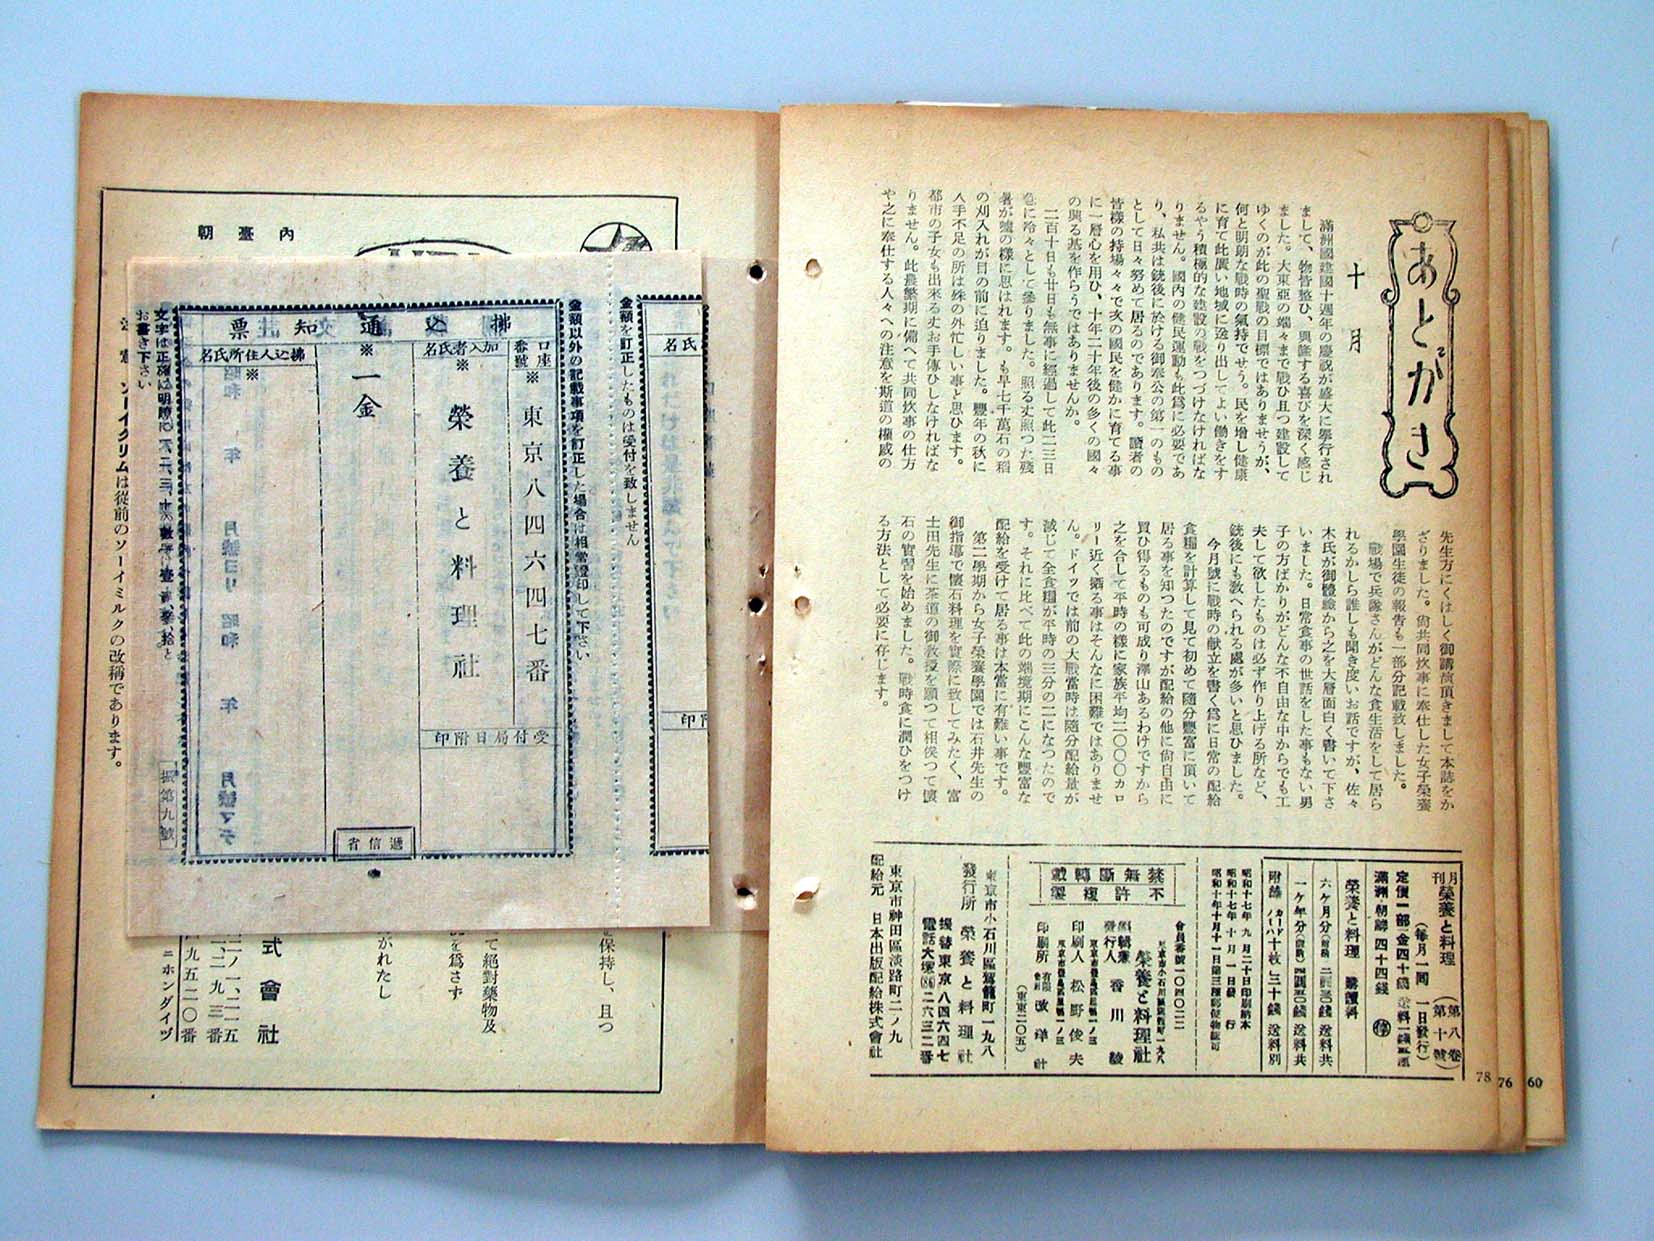 あとがき
十月
滿洲國建國十週年の慶祝が盛大に擧行され
まして、物皆整ひ、興隆する喜びを深く感じ
ました。大東亞の端々まで戰ひ且つ建設して
ゆくのが此の聖戰の目標ではありませうが、
何と明朗な戰時の氣持でせう。民を增し健康
に育て此廣い地域に送り出してよい働きをす
るやう積極的な建設の戰をつづけなければな
りません。國內の健民運動も此爲に必要であ
り、私共は銃後に於ける御奉公の第一のもの
として日々努めて居るのであります。讀者の
皆樣の持場々々で次の國民を健かに育てる事
に一層心を用ひ、十年二十年後の多くの國々
の興る基を作らうではありませんか。
二百十日も廿日も無事に經過して此二三日
急に冷々として參りました。照る丈照つた殘
暑が噓の樣に思はれます。も早七千萬石の稻
の刈入れが目の前に迫りました。豐年の秋に
人手不足の所は殊の外忙しい事と思ひます。
都市の子女も出來る丈お手傳ひしなければな
りません。此農繁期に備へて共同炊事の仕方
や之に奉仕する人々への注意を斯道の權威の
先生方にくはしく御講演頂きまして本誌をか
ざりました。尙共同炊事に奉仕した女子榮養
學園生徒の報告も一部分記載致しました。
戰場で兵隊さんがどんな食生活をして居ら
れるかしら誰しも聞き度いお話ですが、佐々
木氏が御體驗から之を大層面白く書いて下さ
いました。日常食事の世話をした事もない男
子の方ばかりがどんな不自由な中からでも工
夫して欲したものは必ず作り上げる所など、
銃後にも敎へられる處が多いと思ひました。
今月號に戰時の獻立を書く爲に日常の配給
食糧を計算して見て初めて隨分豐富に頂いて
居る事を知つたのですが配給の他に尙自由に
買ひ得るものも可成り澤山あるわけですから
之を合して平時の樣に家族平均二〇〇〇カロ
リー近く攝る事はそんなに困難ではありませ
ん。ドイツでは前の大戰當時は隨分配給量が
減じて全食糧が平時の三分の二になつたので
す。それに比べて此の端境期にこんな豐富な
配給を受けて居る事は本當に有難い事です。
第二學期から女子榮養學園では石井先生の
御指導で懷石料理を實際に致してみたく、富
士田先生に茶道の御敎授を願つて相俟つて懷
石の實習を始めました。戰時食に潤ひをつけ
る方法として必要に存じます。
月刊 榮養と料理 (第八卷 第十號)
(每月一回 一日發行)
定價一部金四十錢
滿洲・朝鮮 四十四錢
榮養と料理 購讀料
昭和十七年九月二十日印刷納本
昭和十七年十月一日發行
禁無斷轉載
不許複製
會員番號一〇四〇二二
榮養と料理社
發行人 香川綾
印刷人 松野俊夫
印刷所
(東東二〇五)
東京市小石川區駕籠町一九八
發行所 榮養と料理社
振替東京八四六四七
電話大塚(86)二六三二番
東京市神田區淡路町二ノ九
配給元 日本出版配給株式會社
78
76
60
金額を訂正したものは受付を致しません
金額以外の記載事項を訂正した場合は相當證印して下さい
拂込通知票
口座番號
※
東京八四六四七番
加入者氏名
※
榮養と料理社
受付局日附印
※
一金
拂込人住所氏名
※
遞信省
お書き下さい
振第九號
內臺朝
ソーイクリムは從前のソーイミルクの改稱であります。
保持し、且つ
て絕對藥物及
を爲さず
がれたし
式會社
九五二〇番
ニホンダイヅ